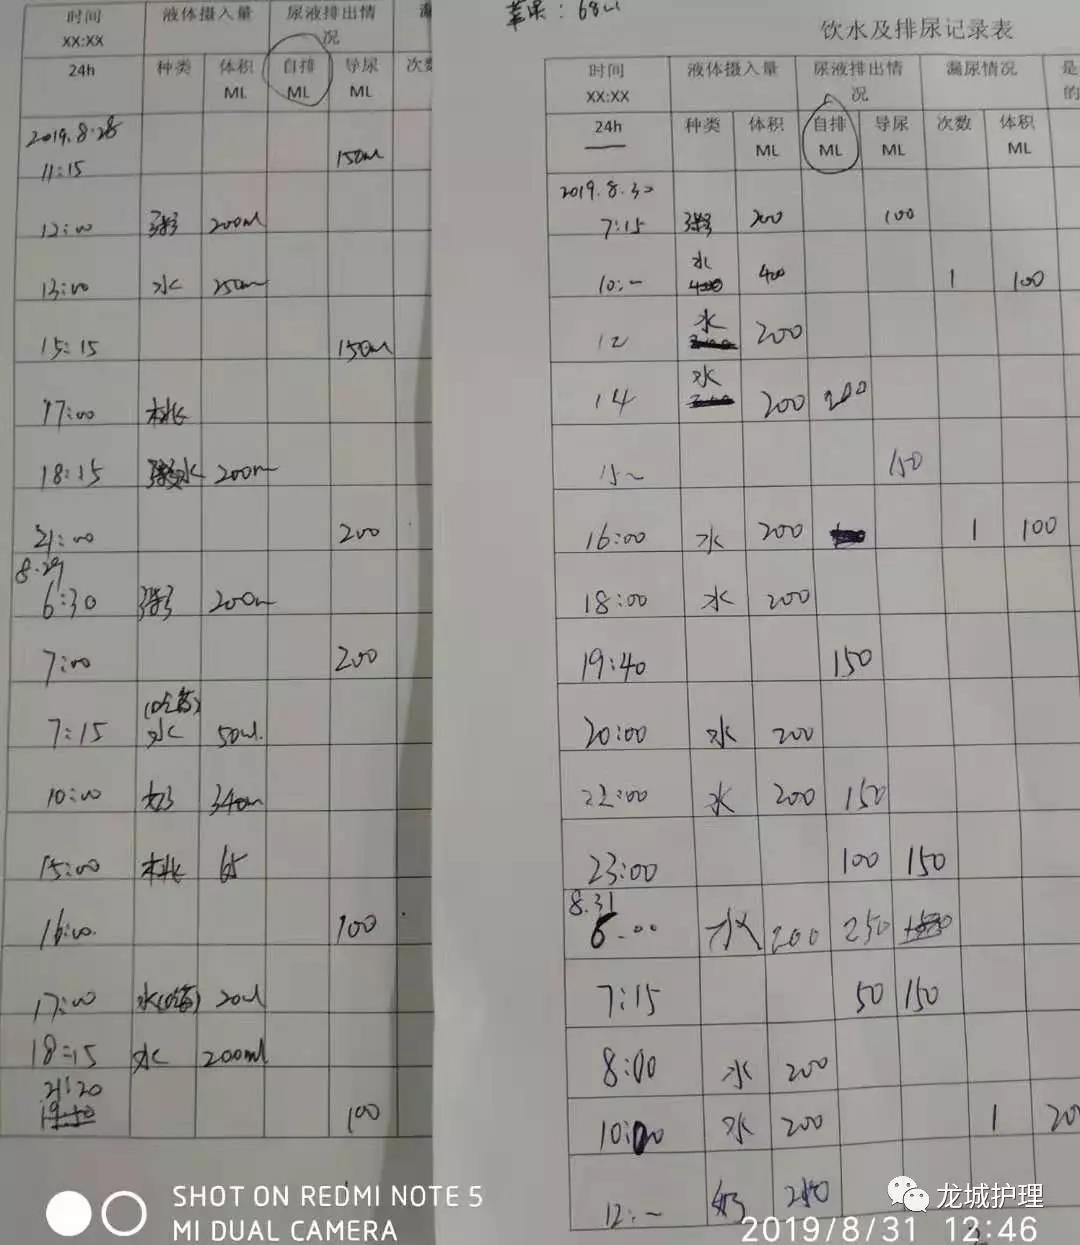 时间 液体摄入量 尿液排出情况
XX:XX
24h 种类 体积 ML 自排 ML 导尿 ML 次数
2019.8.28
11:15 150ml
12:00 粥 200ml
13:00 水 250ml
15:15 150ml
17:00 桃
18:15 水 200m
21:00 200
8.29
6:30 粥 200m
7:00 200
(吃药)
7:15 水 50ml.
10:00 340m
15:00 桃 65
16:00. 100
17:00 水(吃药) 20ml
18:15 水 200ml
21:20
19:50
100
苹果: 68ml
饮水及排尿记录表
时间 液体摄入量 尿液排出情况 漏尿情况 是
XX:XX 的
24h 种类 体积 ML 自排 ML 导尿 ML 次数 体积 ML
2019.8.30
7:15 粥 200 100
10:~ 水 400 400 1 100
12 水 200
14 水 200 200
15~ 150
16:00 水 200 1 100
18:00 水 200
19:40 150
20:00 水 200
22:00 水 200 150
23:00 100 150
8.31
6:00 水 200 250
7:15 50 150
8:00 水 200
10:00 水 200 1 20
12:~
SHOT ON REDMI NOTE 5
MI DUAL CAMERA
龙城护理
2019/8/31 12:46